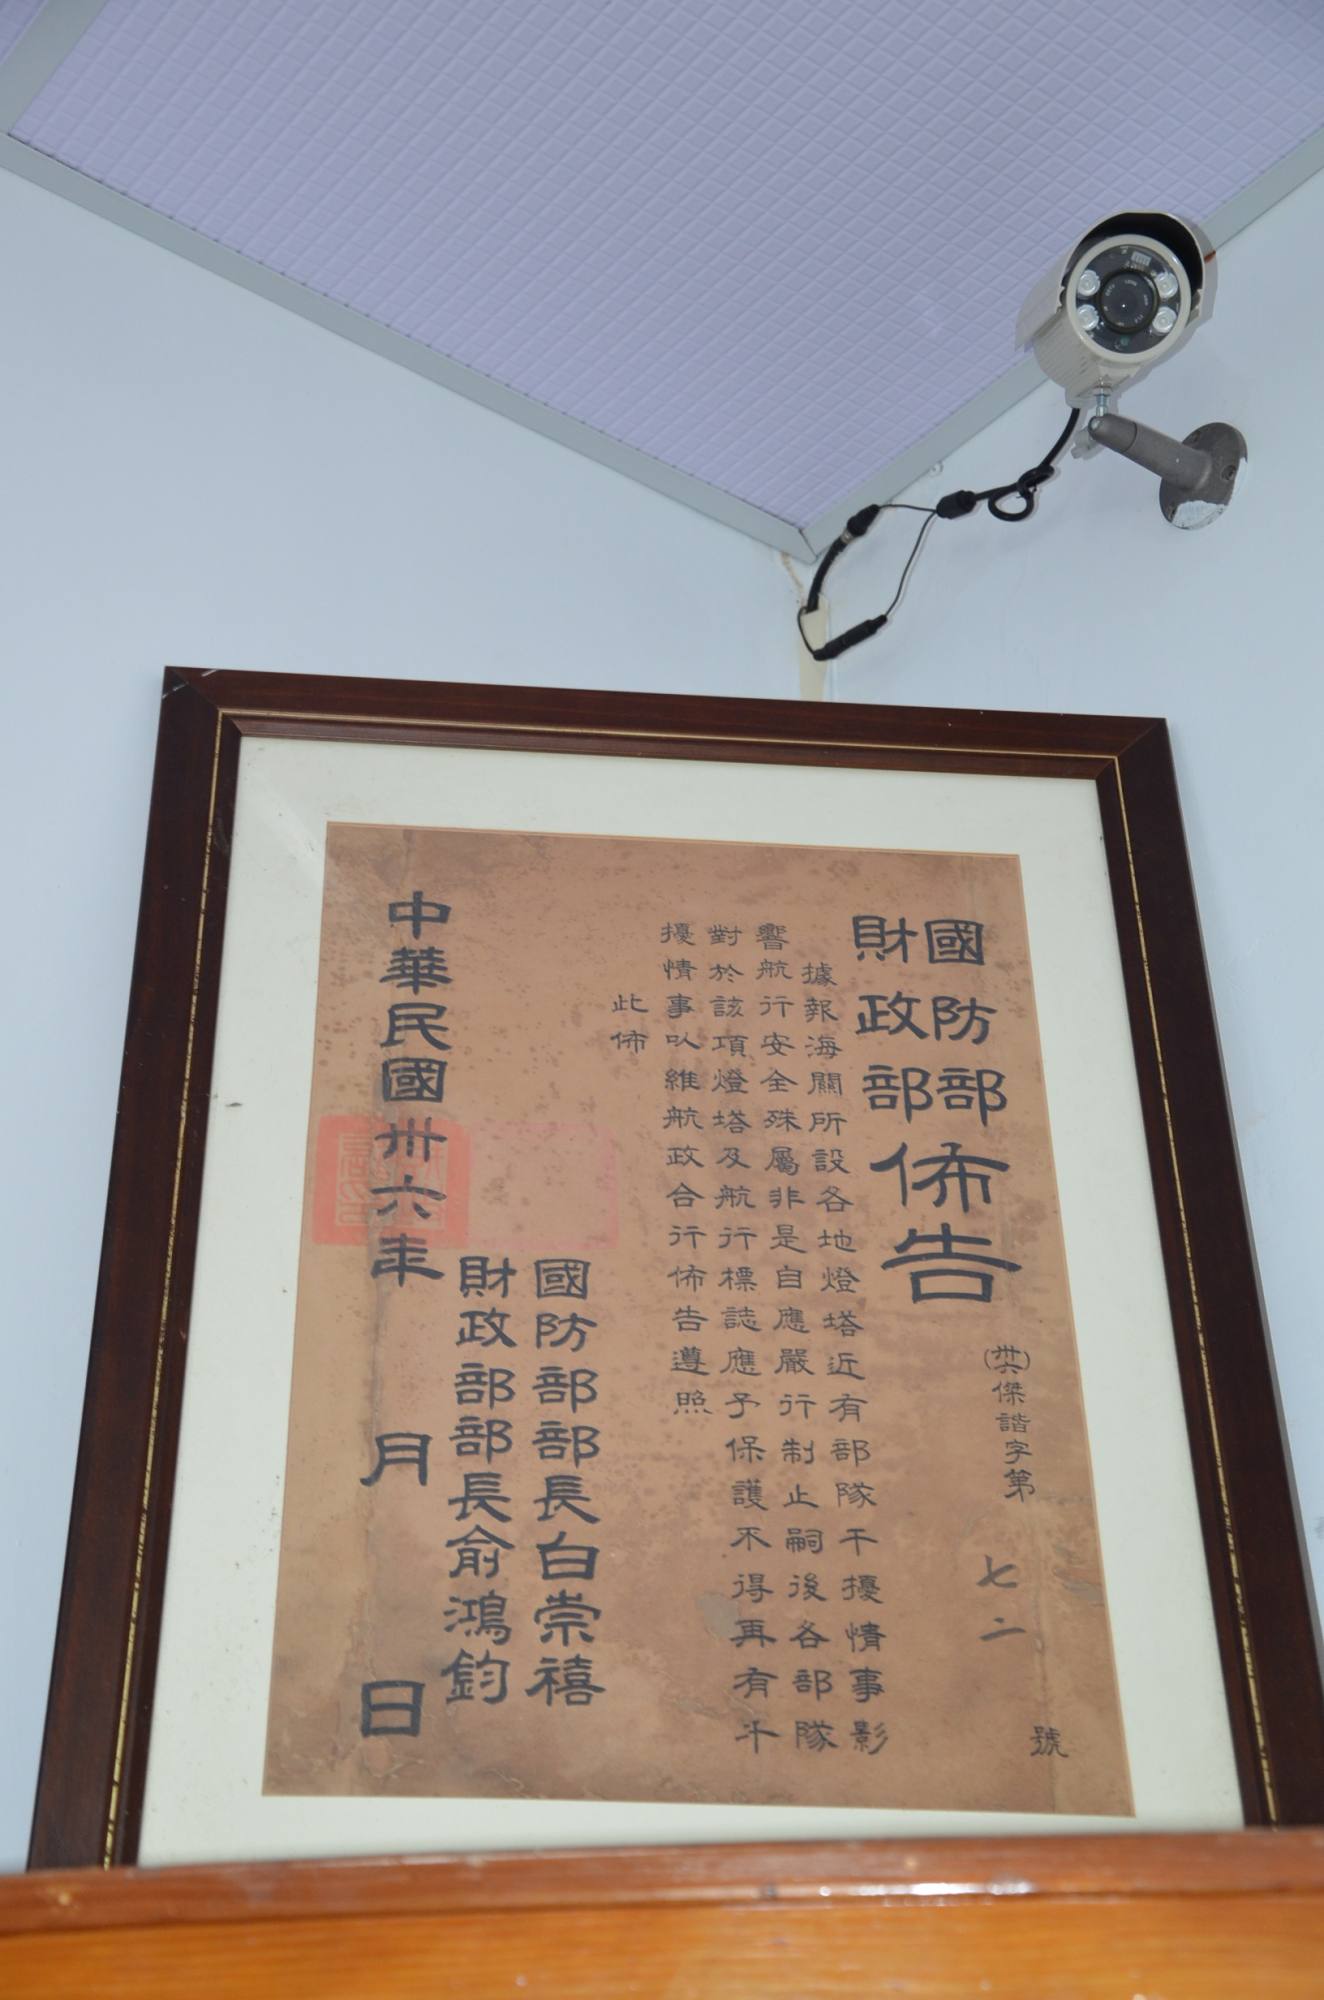 國防部
財政部
佈告
(卅六)傑諧字第七二號
據報海關所設各地燈塔近有部隊干擾情事影
響航行安全殊屬非是自應嚴行制止嗣後各部隊
對於該項燈塔及航行標誌應予保護不得再有干
擾情事以維航政合行佈告遵照
此佈
國防部部長白崇禧
財政部部長俞鴻鈞
中華民國卅六年 月 日